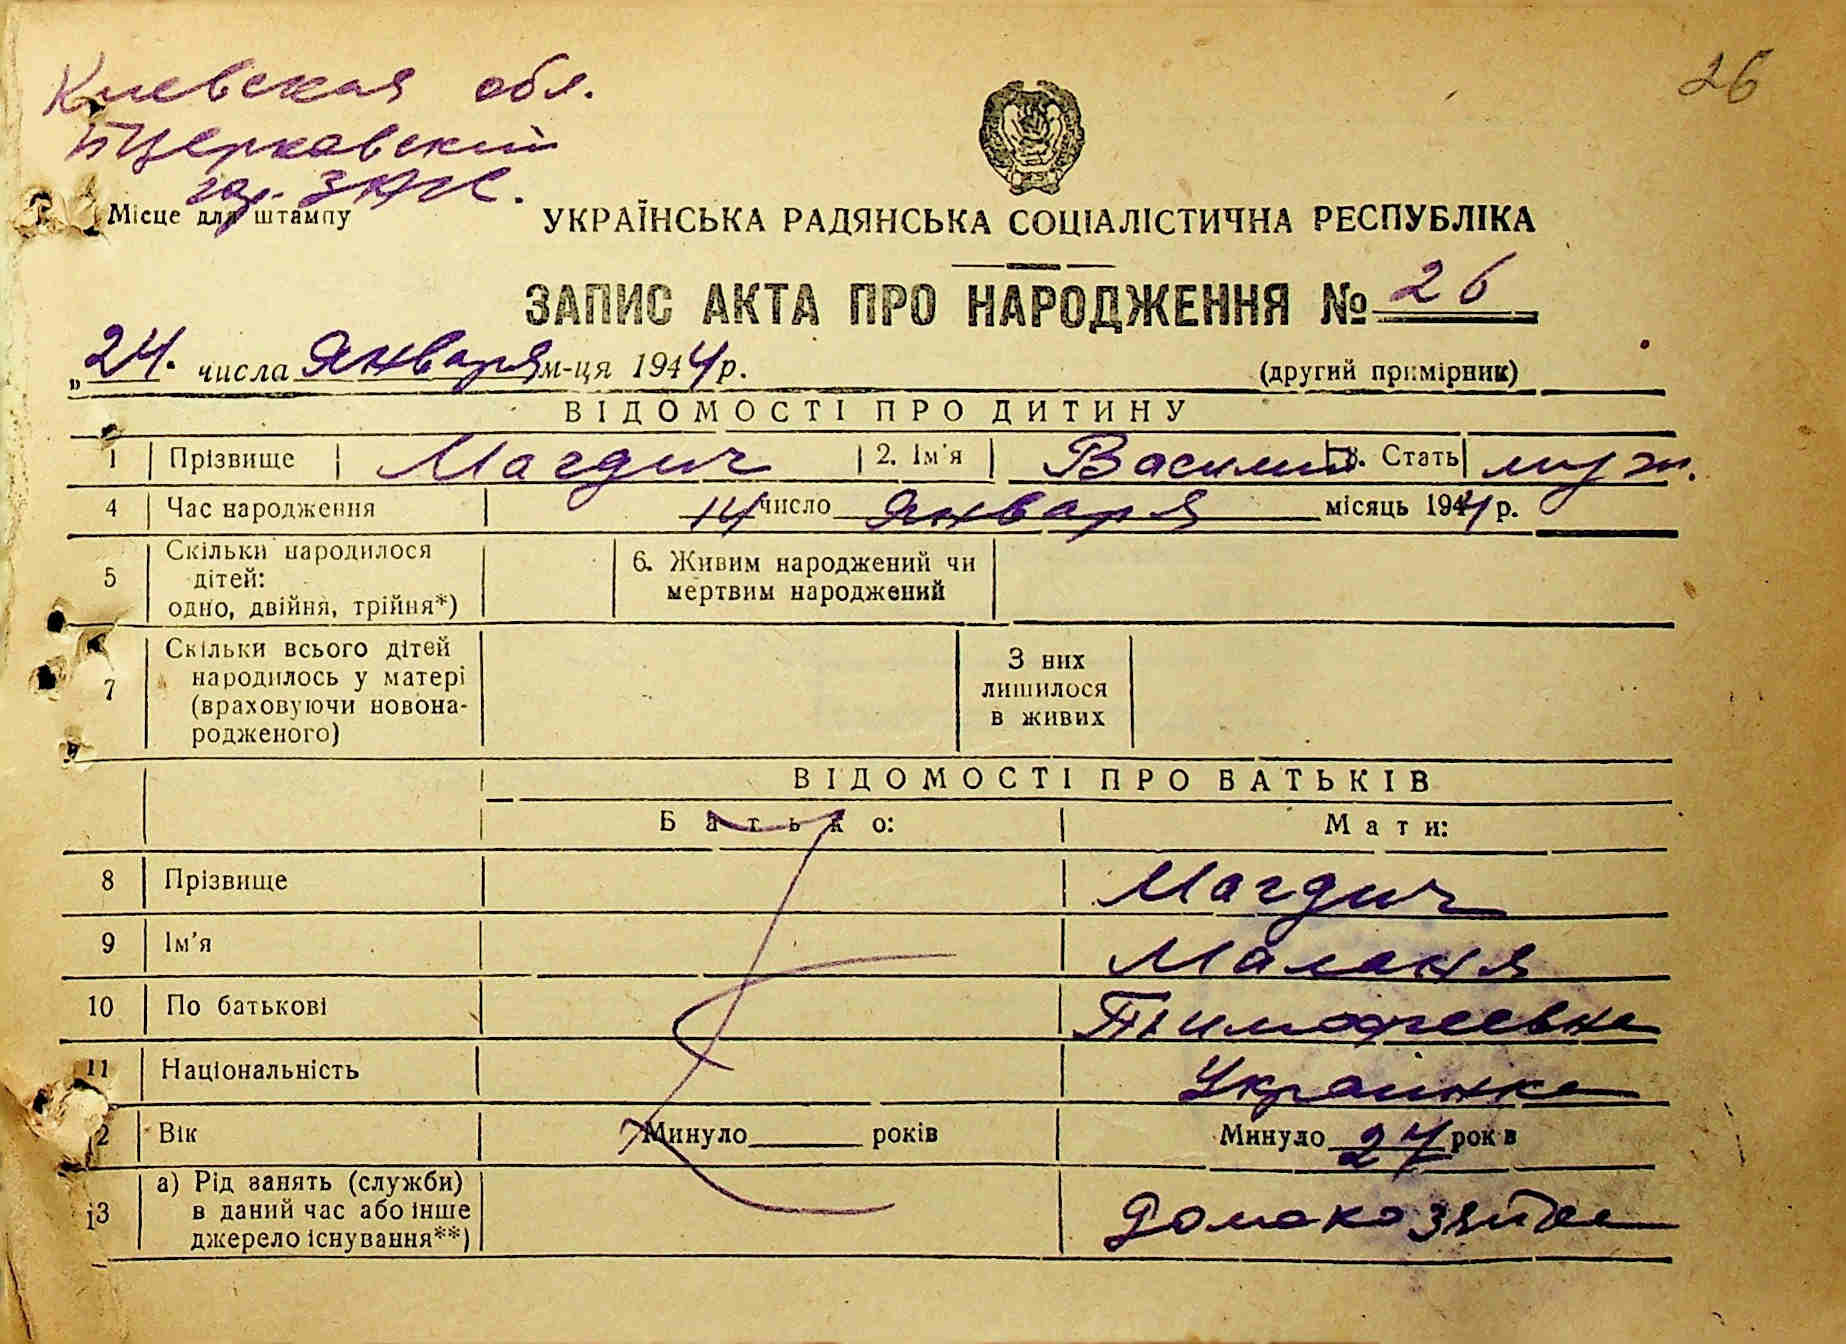 26
Киевская обл.
Б Церкавский
гор. ЗАГС.
Місце для штампу
УКРАЇНСЬКА РАДЯНСЬКА СОЦІАЛІСТИЧНА РЕСПУБЛІКА
ЗАПИС АКТА ПРО НАРОДЖЕННЯ № 26
„24. числа Января м-ця 1944 р.
(другий примірник)
ВІДОМОСТІ ПРО ДИТИНУ
1 Прізвище Магдич 2. Ім'я Василий 3. Стать муж.
4 Час народження 14 число января місяць 1944 р.
5 Скільки народилося дітей: одно, двійня, трійня*) 6. Живим народжений чи мертвим народжений
7 Скільки всього дітей народилось у матері (враховуючи новонародженого) З них лишилося в живих
ВІДОМОСТІ ПРО БАТЬКІВ
Батько: Мати:
8 Прізвище Магдич
9 Ім'я Маланя
10 По батькові Тимофеевна
11 Національність Украинка
12 Вік Минуло років Минуло 24 років
13 а) Рід занять (служби) в даний час або інше джерело існування**) Домохозяйка